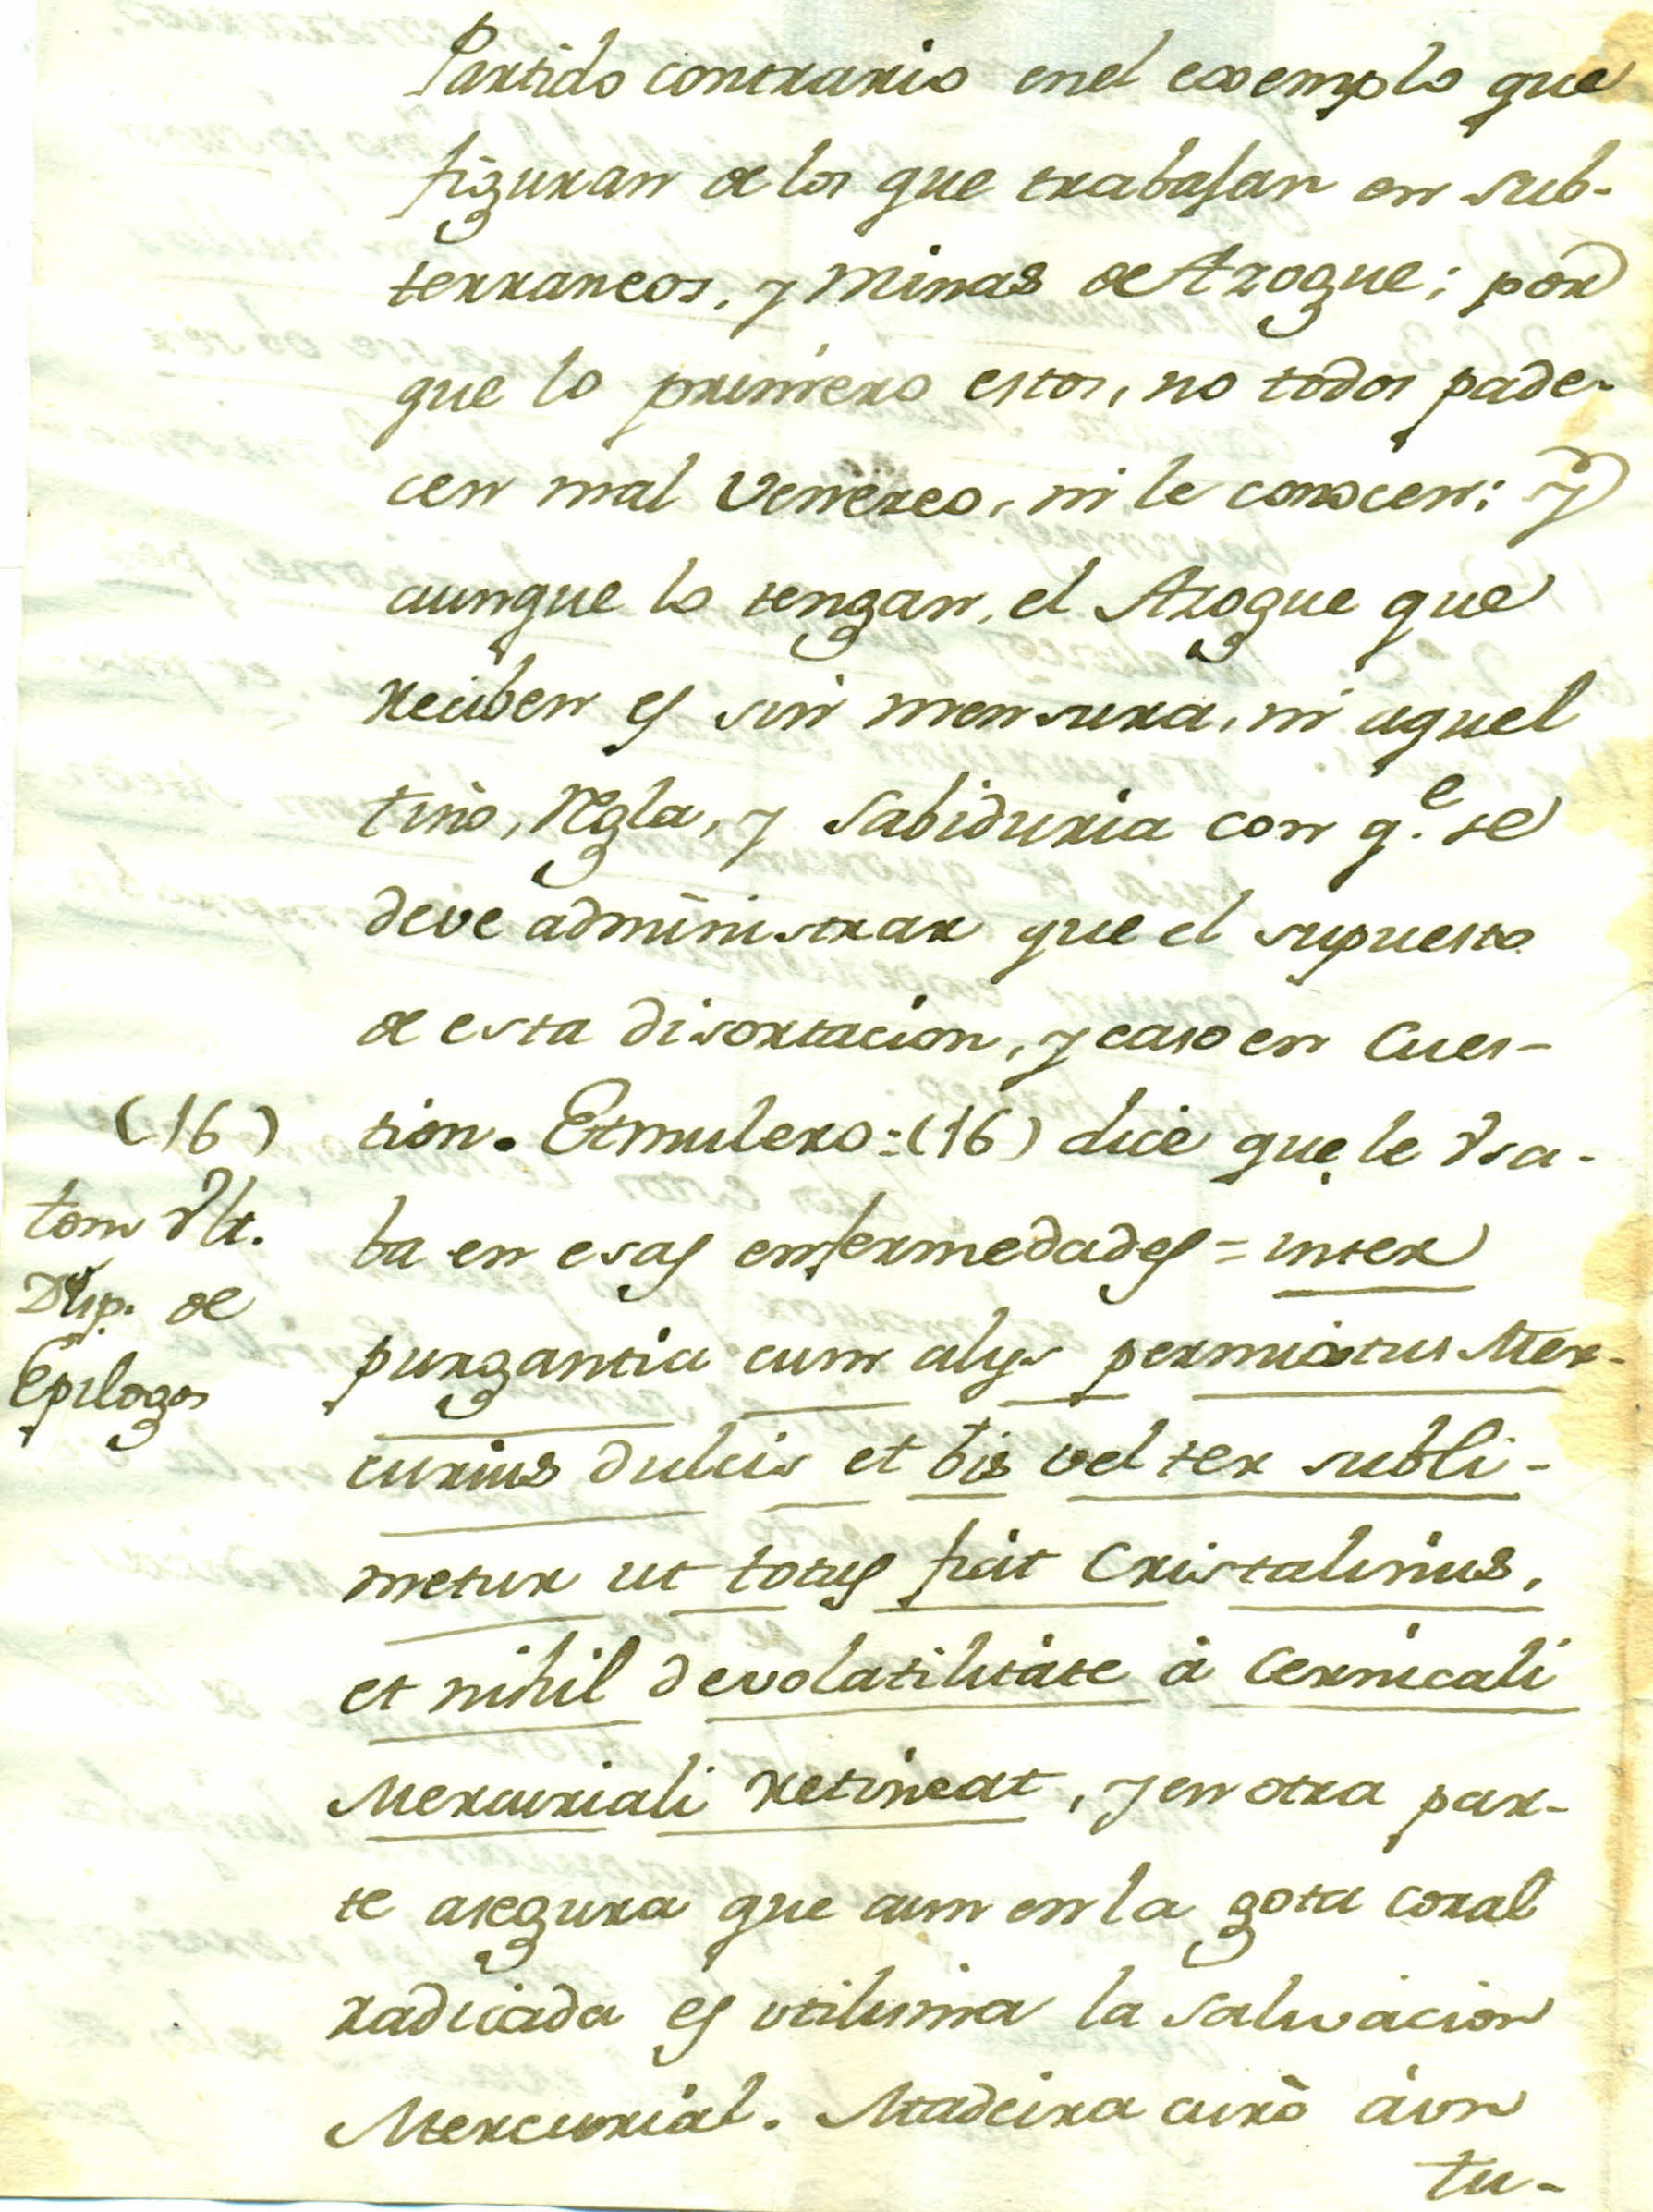 Partido contrario enel exemplo que
figuran de los que trabajan en sub-
terraneos, y Minas de Azogue; por
que lo primero estos, no todos pade-
cen mal Venereo, ni le conocen: y
aunque lo tengan, el Azogue que
reciben es sin mensura, ni aquel
tino, regla, y Sabiduria con q.e se
deve administrar que el supuesto
de esta disertacion, y caso en Cues-
(16)
tion. Etmulero: (16) dice que le Usa-
tom Ult.
ba en esas enfermedades = inter
Disp. de
purgantia cum alys permixtus Mer-
Epilogos
curius dulcis et bis vel ter subli-
metur ut totus fiat Cristalinus,
et nihil devolatilitate à Cernicali
Mercuriali retineat, y en otra par-
te asegura que aun en la gota coral
radicada es utilisima la salivacion
Mercurial. Madeira curò àun
tu-